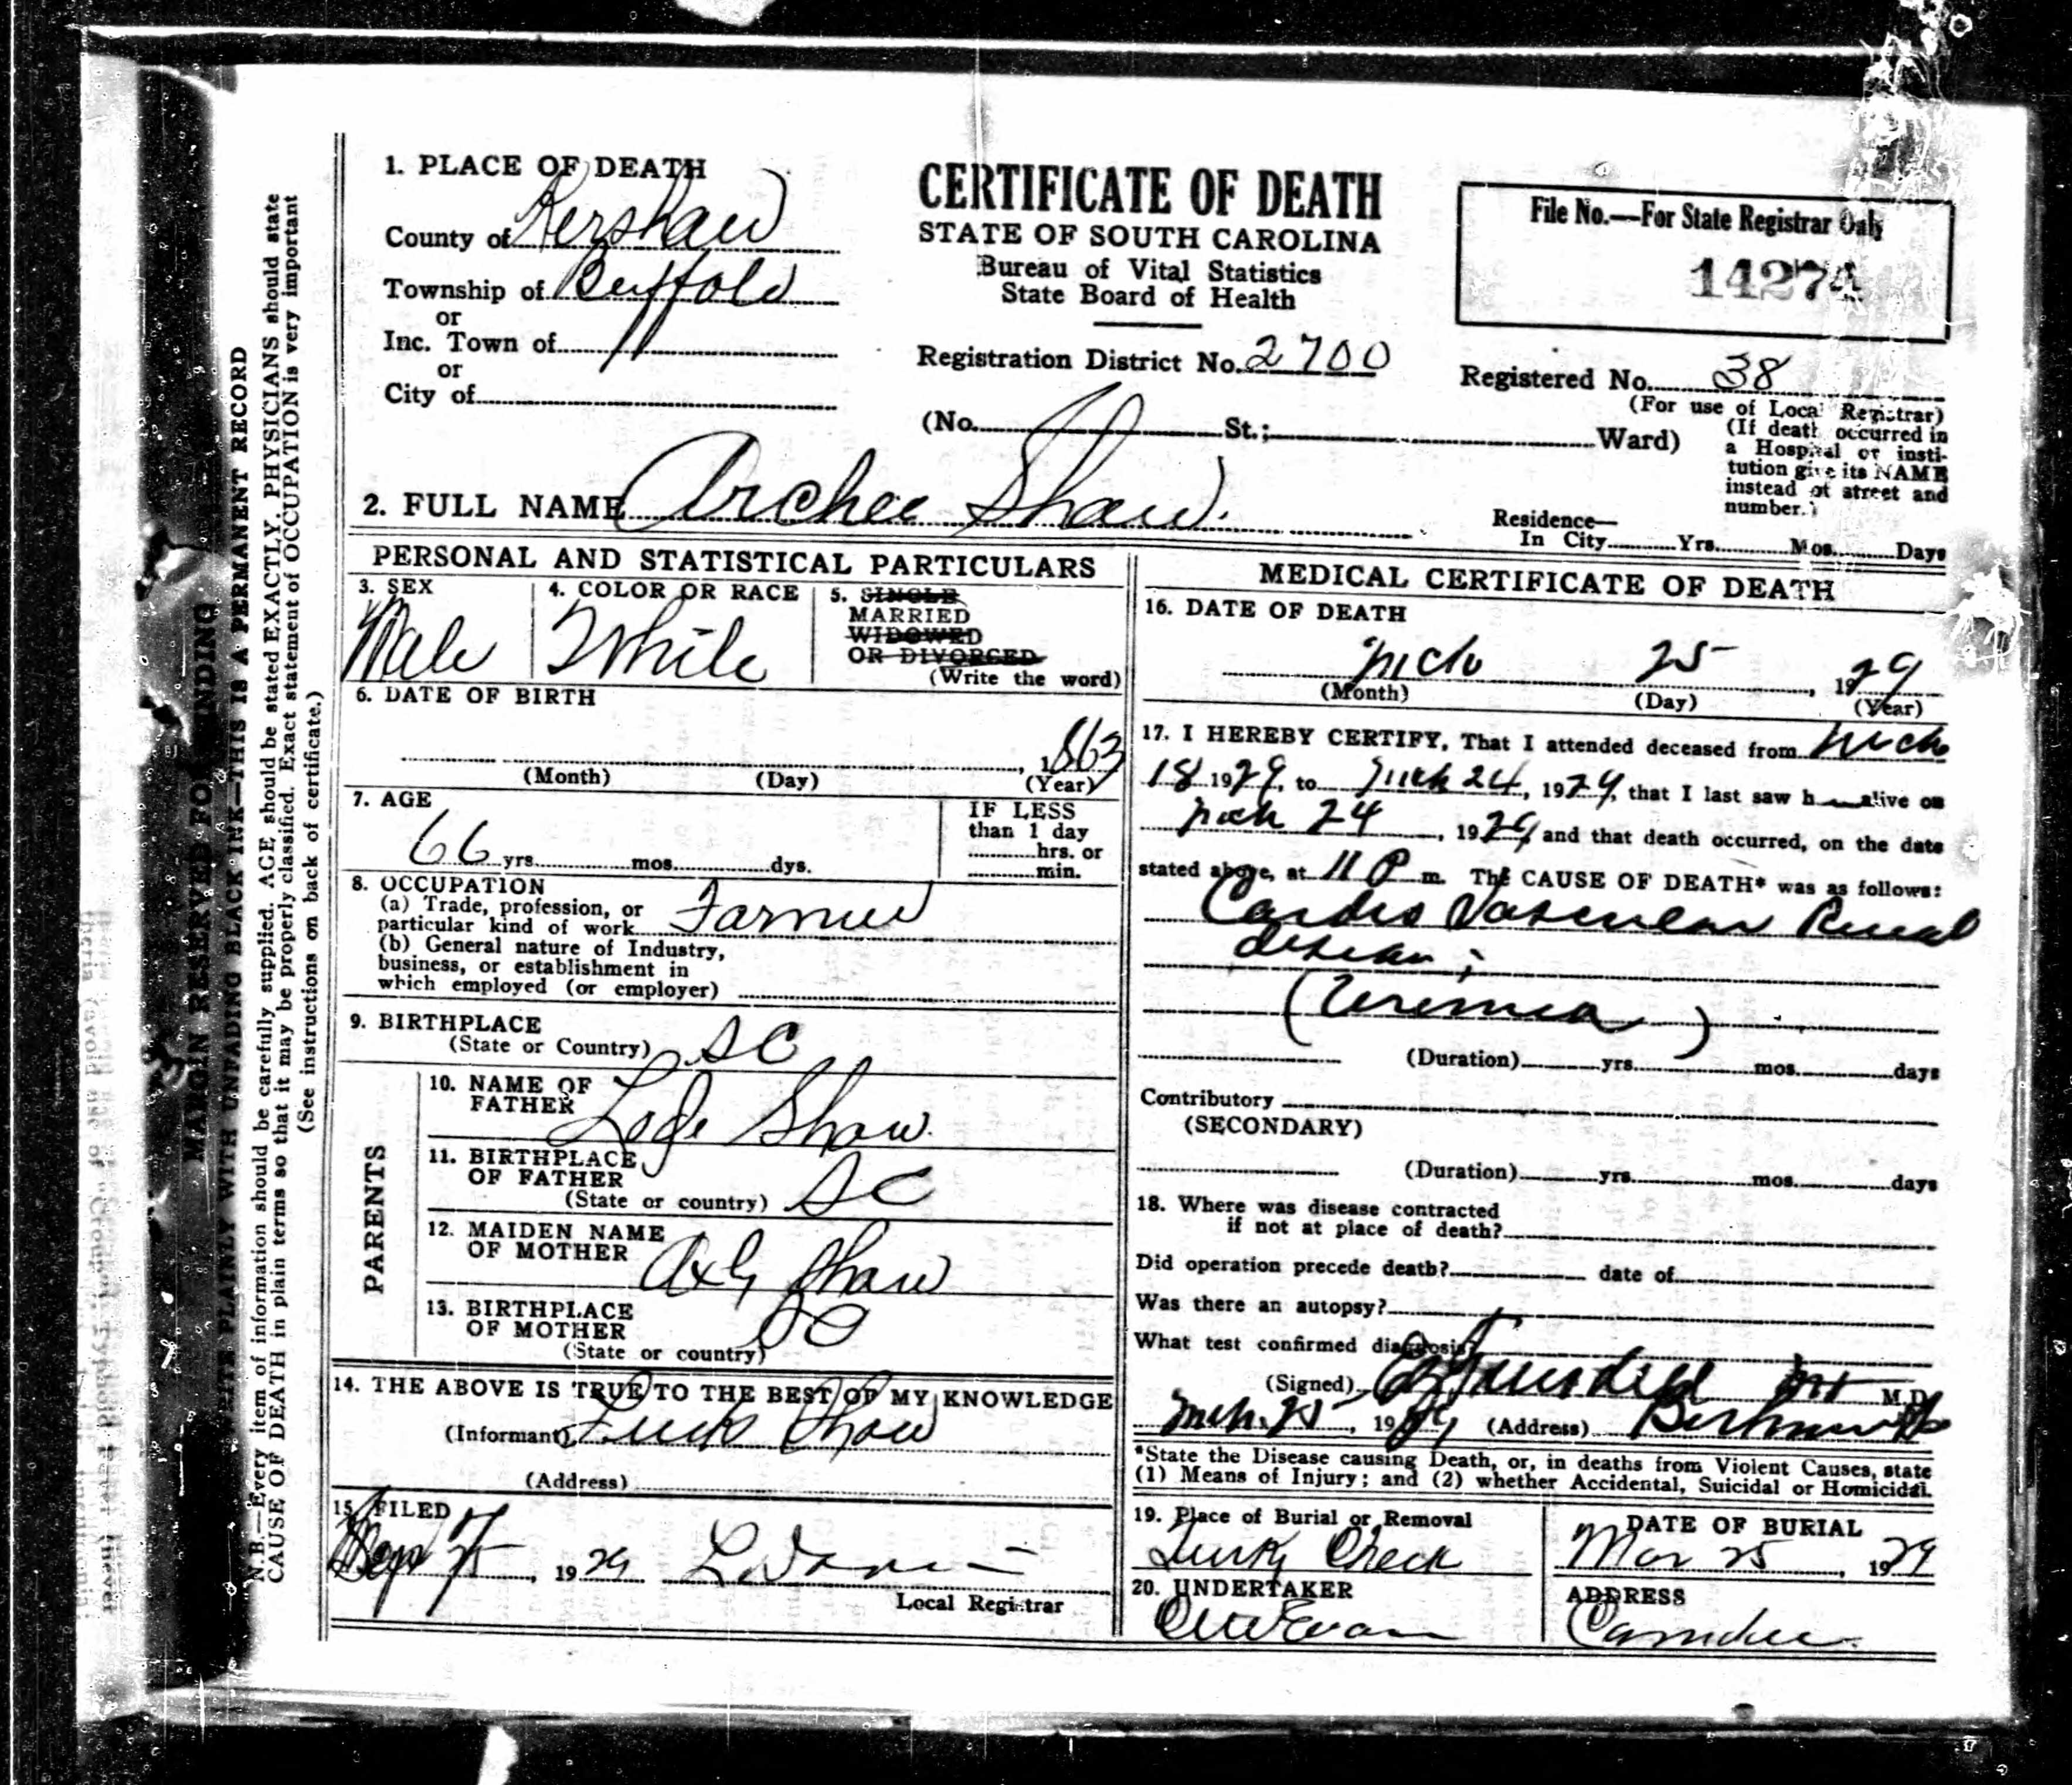 1. PLACE OF DEATH
County of Kershaw
Township of Buffalo
or
Inc. Town of
or
City of
CERTIFICATE OF DEATH
STATE OF SOUTH CAROLINA
Bureau of Vital Statistics
State Board of Health
Registration District No. 2700
File No.—For State Registrar Only
14274
Registered No. 38
(For use of Local Registrar)
(No. St.; Ward)
(If death occurred in
a Hospital or insti-
tution give its NAME
instead of street and
number.)
2. FULL NAME Archee Shaw.
Residence—
In City Yrs. Mos. Days
PERSONAL AND STATISTICAL PARTICULARS
3. SEX
Male
4. COLOR OR RACE
White
5. SINGLE
MARRIED
WIDOWED
OR DIVORCED
(Write the word)
6. DATE OF BIRTH
, 1863
(Month) (Day) (Year)
7. AGE
66 yrs. mos. dys.
IF LESS
than 1 day
hrs. or
min.
8. OCCUPATION
(a) Trade, profession, or
particular kind of work Farmer
(b) General nature of Industry,
business, or establishment in
which employed (or employer)
9. BIRTHPLACE
(State or Country) SC
PARENTS
10. NAME OF
FATHER Shaw.
11. BIRTHPLACE
OF FATHER
(State or country) SC
12. MAIDEN NAME
OF MOTHER Axly Shaw
13. BIRTHPLACE
OF MOTHER SC
(State or country)
14. THE ABOVE IS TRUE TO THE BEST OF MY KNOWLEDGE
(Informant) Shaw
(Address)
15. FILED
, 1929
Local Registrar
MEDICAL CERTIFICATE OF DEATH
16. DATE OF DEATH
Mch 25 , 1929
(Month) (Day) (Year)
17. I HEREBY CERTIFY, That I attended deceased from Mch
18 1929, to Mch 24, 1929, that I last saw h alive on
Mch 24 , 1929 and that death occurred, on the date
stated above, at 11 P m. The CAUSE OF DEATH* was as follows:
Cardio Vascular Renal
disease;
(Uremia)
(Duration) yrs. mos. days
Contributory
(SECONDARY)
(Duration) yrs. mos. days
18. Where was disease contracted
if not at place of death?
Did operation precede death? date of
Was there an autopsy?
What test confirmed diagnosis?
(Signed) M.D.
Mch. 25, 1929 (Address)
*State the Disease causing Death, or, in deaths from Violent Causes, state
(1) Means of Injury; and (2) whether Accidental, Suicidal or Homicidal.
19. Place of Burial or Removal
Turky Creek
DATE OF BURIAL
Mar 25 , 1929
20. UNDERTAKER
ADDRESS
Camden
MARGIN RESERVED FOR BINDING
WRITE PLAINLY WITH UNFADING BLACK INK—THIS IS A PERMANENT RECORD
N.B.—Every item of information should be carefully supplied. AGE should be stated EXACTLY. PHYSICIANS should state
CAUSE OF DEATH in plain terms so that it may be properly classified. Exact statement of OCCUPATION is very important
(See instructions on back of certificate.)